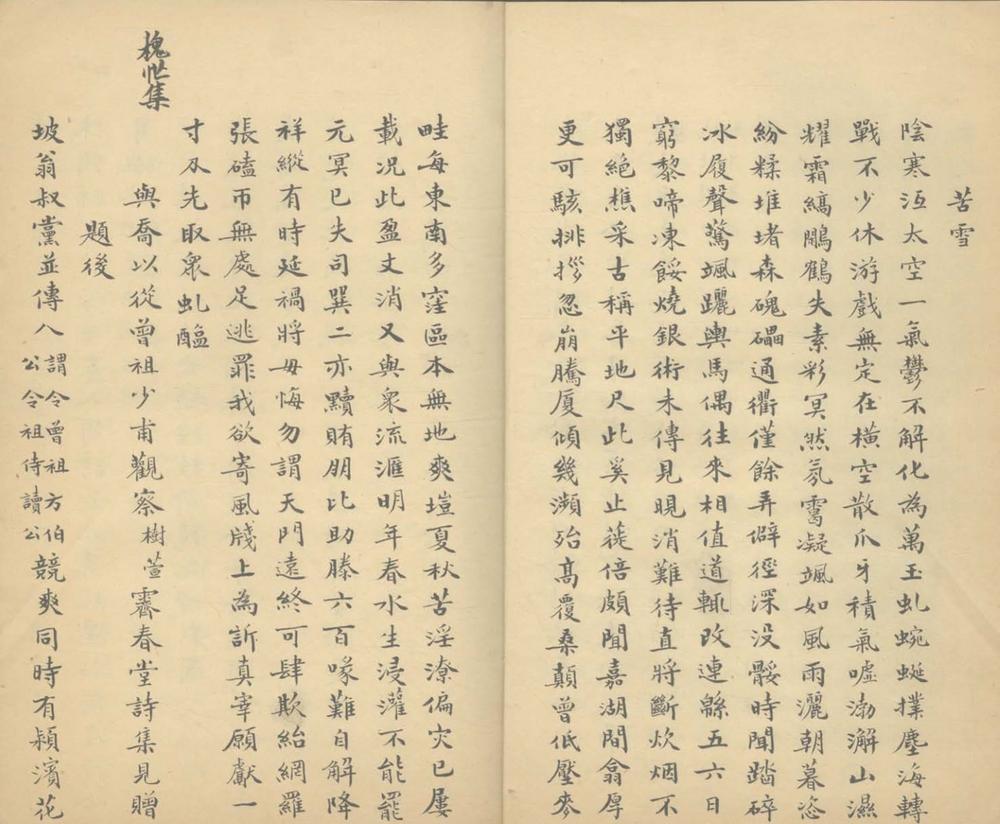 苦雪
陰寒沍太空一氣鬱不解化為萬玉虬蜿蜒撲塵海轉
戰不少休游戲無定在橫空散爪牙積氣噓渤澥山濕
耀霜縞鵰鶴失素彩冥然氛霱凝颯如風雨灑朝暮恣
紛糅堆堵森磈礧通衢僅餘弄僻徑深没骽時聞踏碎
冰履聲驚颯躧輿馬偶往來相值道輒改連緜五六日
窮黎啼凍餒燒銀術未傳見晛消難待直將斷炊烟不
獨絕樵采古稱平地尺此奚止蓰倍頗聞嘉湖間翕厚
更可駭排拶忽崩騰厦傾幾瀕殆髙覆桑顛曾低壓麥
畦每東南多窪區本無地爽塏夏秋苦淫潦偏灾已屢
載况此盈丈消又與衆流滙明年春水生浸灌不能罷
元冥已失司巽二亦黷賄朋比助滕六百喙難自解降
祥縱有時延禍將毋悔勿謂天門遠終可肆欺紿網羅
張磕帀無處足逃罪我欲寄風牋上為訴真宰願獻一
寸刄先取衆虬醢
與喬以從曾祖少甫觀察樹萱霽春堂詩集見贈
題後
坡翁叔黨並傳八謂令曾祖方伯公令祖侍讀公競爽同時有穎濱花
槐忙集